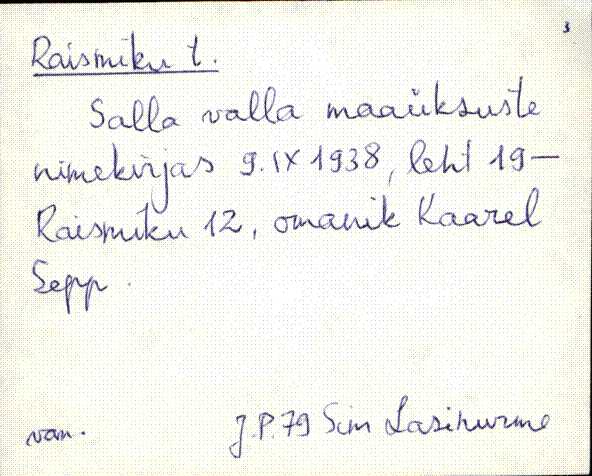 3
Raismiku t.
Salla valla maaüksuste
nimekirjas 9.IX 1938, leht 19—
Raismiku 12, omanik Kaarel
Sepp.
van.
J.P.79 Sim Lasinurme